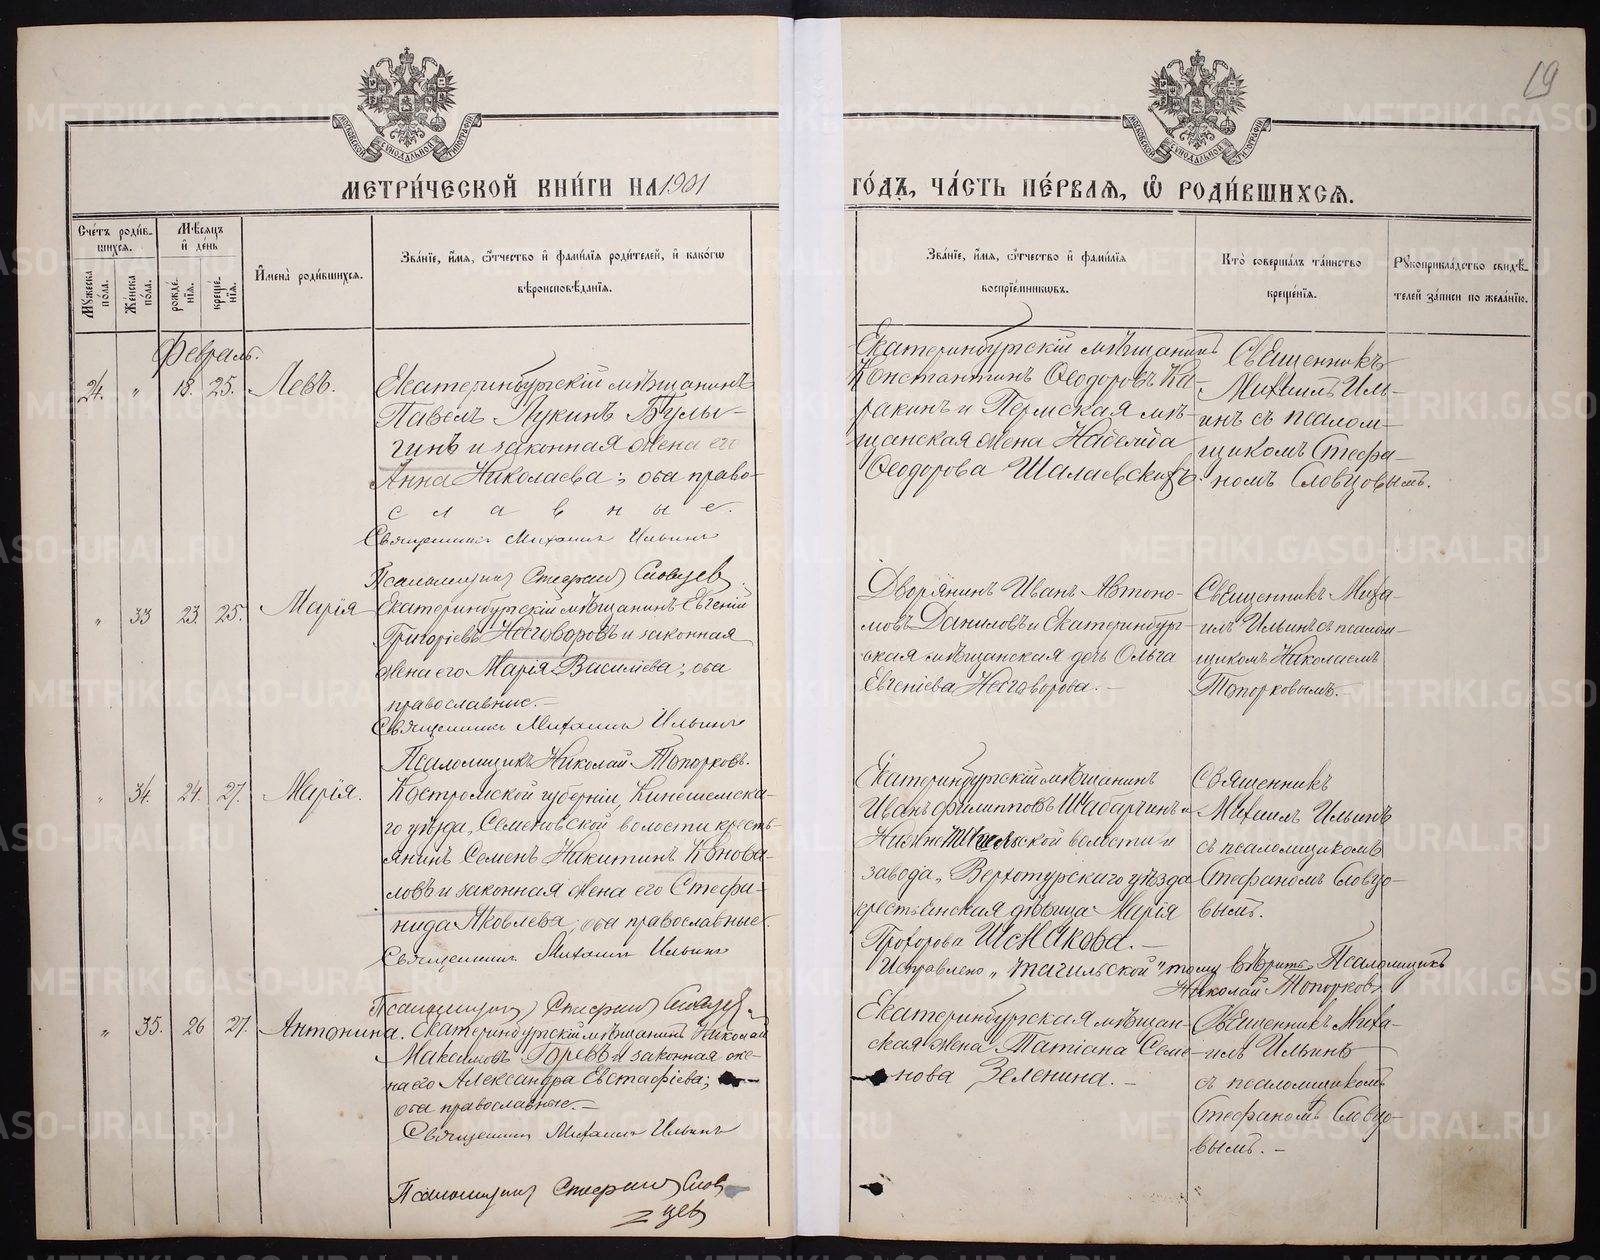 19
МОСКОВСКОЙ СѴНОДАЛЬНОЙ ТИПОГРАФІИ
МОСКОВСКОЙ СѴНОДАЛЬНОЙ ТИПОГРАФІИ
МЕТРИ́ЧЕСКОЙ КНИ́ГИ НА 1901
ГО́ДЪ, ЧА́СТЬ ПЕ́РВАѦ, Ѡ҆ РОДИ́ВШИХСѦ.
Сче́тъ роди́в-
шихся.
Мꙋ́жеска по́ла.
Же́нска по́ла.
Мѣ́сяцъ
и҆ де́нь
рожде́-
нїя.
креще́-
нїя.
И҆мена̀ роди́вшихся.
Зва́нїе, и҆́мя, ѻ҆́тчество и҆ фами́лїя роди́телей, и҆ како́гѡ
вѣроисповѣ́данїя.
Зва́нїе, и҆́мя, ѻ҆́тчество и҆ фами́лїя
воспрїе́мниковъ.
Кто̀ соверша́лъ та́инство
креще́нїя.
Рꙋкоприкла́дство свидѣ́-
телей за́писи по жела́нїю.
Февраль.
24. " 18. 25. Левъ.
Екатеринбургскій мѣщанинъ
Павелъ Лукинъ Булы-
гинъ и законная жена его
Анна Николаева; оба право-
славные.
Священникъ Михаилъ Ильинъ
Псаломщикъ Стефанъ Словцевъ
Екатеринбургскій мѣщанинъ
Константинъ Ѳеодоровъ Ка-
ракинъ и Пермская мѣ-
щанская жена Надежда
Ѳеодорова Шалаевскихъ.
Священникъ
Михаилъ Иль-
инъ съ псалом-
щикомъ Стефа-
номъ Словцовымъ.
" 33 23. 25. Марія
Екатеринбургскій мѣщанинъ Евгеній
Григорьевъ Несговоровъ и законная
жена его Марія Василіева; оба
православные.-
Священникъ Михаилъ Ильинъ
Псаломщикъ Николай Топорковъ.
Дворянинъ Иванъ Автоно-
мовъ Даниловъ и Екатеринбург-
ская мѣщанская дочь Ольга
Евгеніева Несговорова.-
Священникъ Миха-
илъ Ильинъ съ псалом-
щикомъ Николаемъ
Топорковымъ.-
" 34. 24. 27. Марія.
Костромской губерніи, Кинешемска-
го уѣзда, Семеновской волости кресть-
янинъ Семенъ Никитинъ Конова-
ловъ и законная жена его Стефа-
нида Яковлева; оба православные.
Священникъ Михаилъ Ильинъ
Псаломщикъ Стефанъ Словцевъ
Екатеринбургскій мѣщанинъ
Иванъ Филипповъ Шабарчинъ и
Нижнетагильской волости и
завода, Верхотурскаго уѣзда
крестьянская дѣвица Марія
Прохорова Исмакова.-
Исправлено "тагильской" тому вѣрить. Псаломщикъ
Николай Топорковъ
Священникъ
Михаилъ Ильинъ
съ псаломщикомъ
Стефаномъ Словцо-
вымъ.
" 35. 26 27. Антонина.
Екатеринбургскій мѣщанинъ Николай
Максимовъ Горевъ и законная же-
на его Александра Евстафіева;
оба православные.-
Священникъ Михаилъ Ильинъ
Псаломщикъ Стефанъ Слов
цевъ
Екатеринбургская мѣщан-
ская жена Татіана Семе-
нова Зеленина.-
Священникъ Миха-
илъ Ильинъ
съ псаломщикомъ
Стефаномъ Словцо-
вымъ.-
METRIKI.GASO-URAL.RU